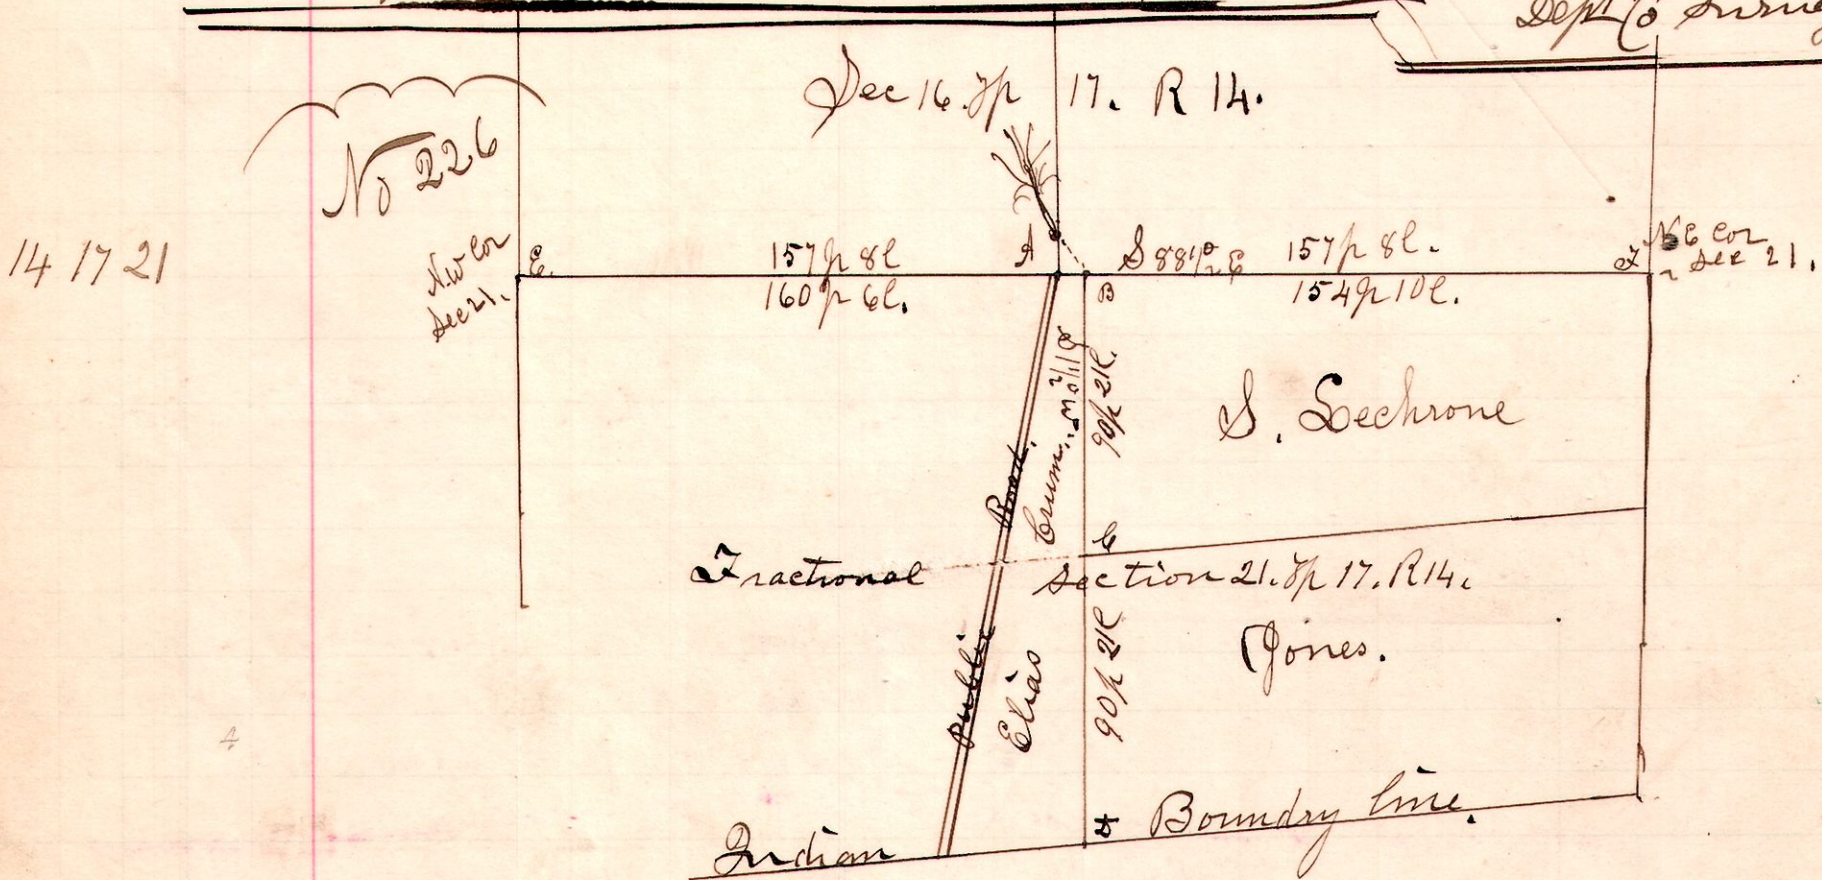 Dept Co
Sec 16. Tp 17. R 14.
No 226
14 17 21
N.W Cor
Sec 21.
E.
157p 8l
A
S 88 1/2° E
157p 8l.
F
N E Cor
Sec 21.
160p 6l.
B
154p 10l.
90p 21l.
S. Lechrone
Public Road.
Elias Crum.
C
Fractional section 21. Tp 17. R 14.
90p 21l
Jones.
D
Indian Boundry line.